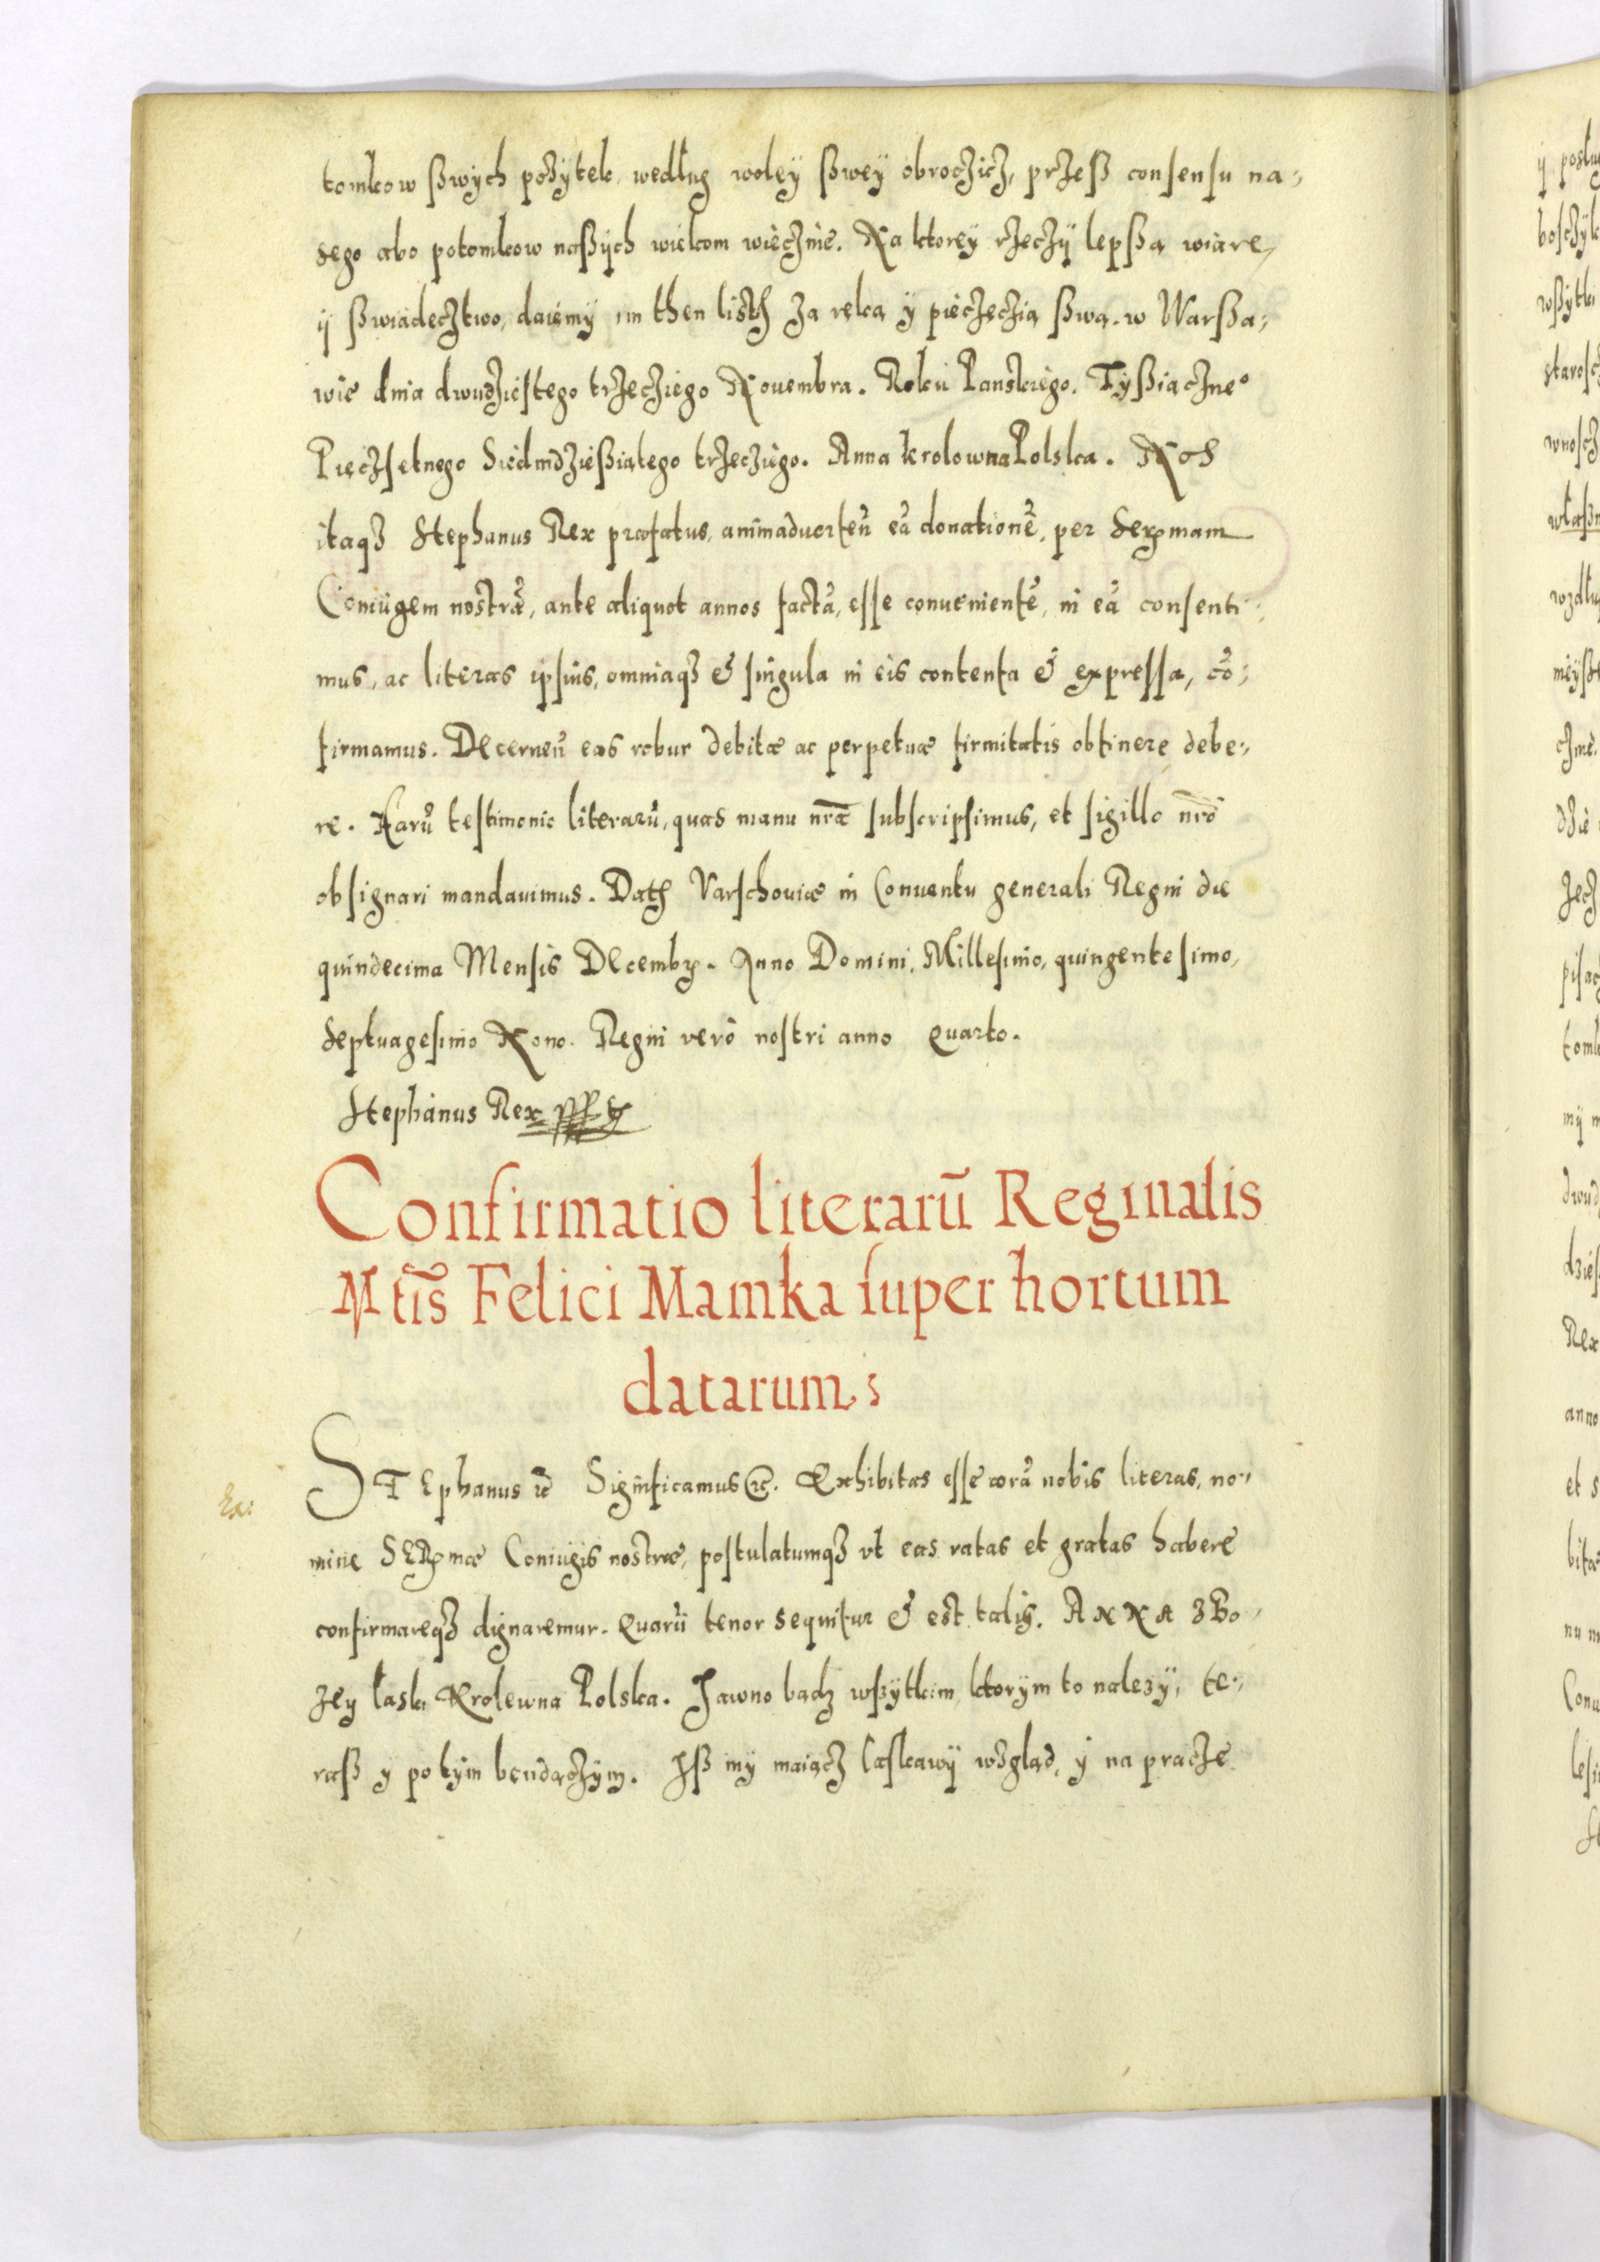 tomkow ßwÿch pożytek wedlug woleÿ ßweÿ obroczicz, przeß consensu na-
sego abo potomkow naßÿch wiekom wiecznie. Na ktoreÿ rzeczÿ lepßą wiarę,
ÿ ßwiadecztwo, daiemÿ im then listh za reką ÿ pieczęczią ßwą. w Warßa-
wie dnia dwudziestego trzecziego Nouembra. Roku Panskiego. Tÿßiączne°
Pięczsetnego Siedmdzießiątego trzecziego. Anna krolowna Polska. Nos
itaqȝ Stephanus Rex præfatus, animaduerteñ eã donationẽ, per Serẽmam
Coniugem nostrã, ante aliquot annos factã, esse conuenientẽ, in eã consenti-
mus, ac literas ipsius, omniaqȝ & singula in eis contenta & expressa, cõ-
firmamus. Decerneñ eas robur debitæ ac perpetuæ firmitatis obtinere debe-
re. Harũ testimonio literarũ, quas manu nr̃a subscripsimus, et sigillo nr̃o
obsignari mandauimus. Dath Varschouiæ in Conuentu generali Regni die
quindecima Mensis Decembr. Anno Domini, Millesimo, quingentesimo,
Septuagesimo Nono. Regni verò nostri anno Quarto.
Stephanus Rex
Confirmatio literarũ Reginalis
Mtĩs Felici Mamka super hortum
datarum
STEphanus etc Significamus etc. Exhibitas esse corã nobis literas, no-
mine SERmæ Coniugis nostræ, postulatumqȝ vt eas ratas et gratas habere
confirmareqȝ dignaremur. Quarũ tenor sequitur & est talis. ANNA z Bo-
zeÿ łaski Krolewna Polska. Jawno bądz wßÿtkim ktorÿm to nalezÿ, te-
raß ÿ potÿm bendączÿm. Jß mÿ maiącz łaskawÿ wzgląd, ÿ na pracze